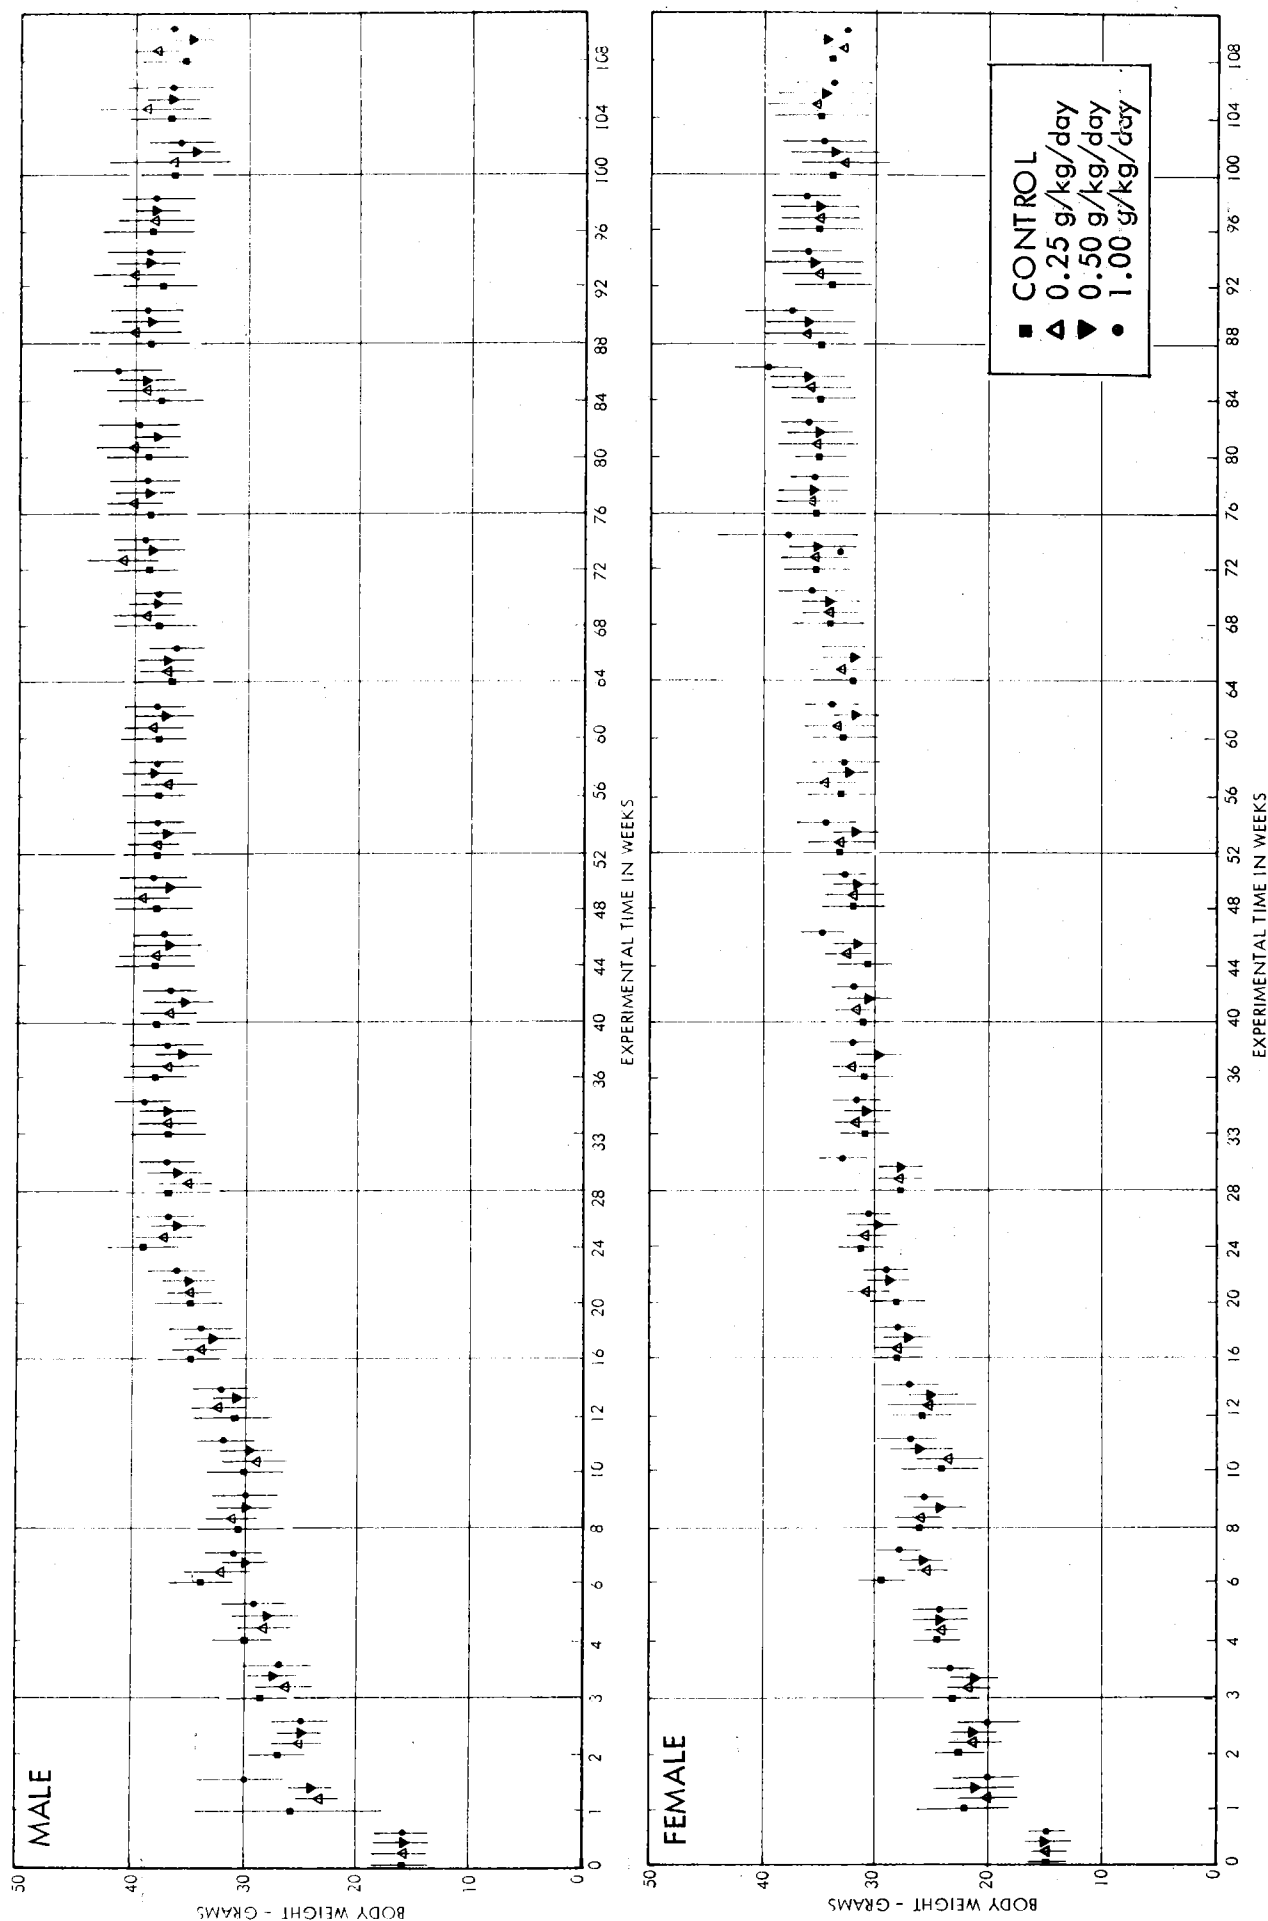 MALE
50
40
30
20
10
0
BODY WEIGHT - GRAMS
0 1 2 3 4 6 8 10 12 16 20 24 28 33 36 40 44 48 52 56 60 64 68 72 76 80 84 88 92 96 100 104 108
EXPERIMENTAL TIME IN WEEKS
FEMALE
50
40
30
20
10
0
BODY WEIGHT - GRAMS
0 1 2 3 4 6 8 10 12 16 20 24 28 33 36 40 44 48 52 56 60 64 68 72 76 80 84 88 92 96 100 104 108
EXPERIMENTAL TIME IN WEEKS
CONTROL
0.25 g/kg/day
0.50 g/kg/day
1.00 g/kg/day